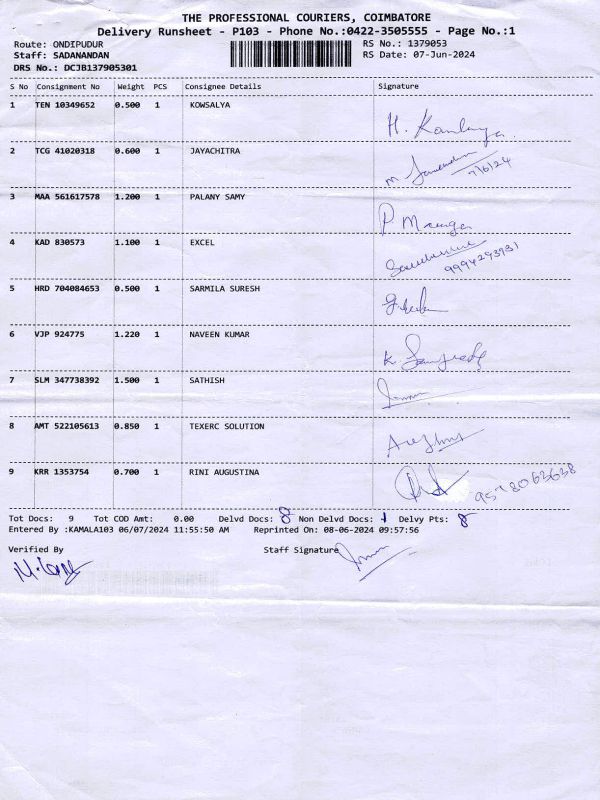 THE PROFESSIONAL COURIERS, COIMBATORE
Delivery Runsheet - P103 - Phone No.:0422-3505555 - Page No.:1
Route: ONDIPUDUR RS No.: 1379053
Staff: SADANANDAN RS Date: 07-Jun-2024
DRS No.: DCJB137905301
S No Consignment No Weight PCS Consignee Details Signature
1 TEN 10349652 0.500 1 KOWSALYA H.
2 TCG 41020318 0.600 1 JAYACHITRA M 7/6/24
3 MAA 561617578 1.200 1 PALANY SAMY P.
4 KAD 830573 1.100 1 EXCEL 9994293931
5 HRD 704084653 0.500 1 SARMILA SURESH
6 VJP 924775 1.220 1 NAVEEN KUMAR K
7 SLM 347738392 1.500 1 SATHISH
8 AMT 522105613 0.850 1 TEXERC SOLUTION
9 KRR 1353754 0.700 1 RINI AUGUSTINA
Tot Docs: 9 Tot COD Amt: 0.00 Delvd Docs: 8 Non Delvd Docs: 1 Delvy Pts: 8
Entered By :KAMALA103 06/07/2024 11:55:50 AM Reprinted On: 08-06-2024 09:57:56
Verified By Staff Signature